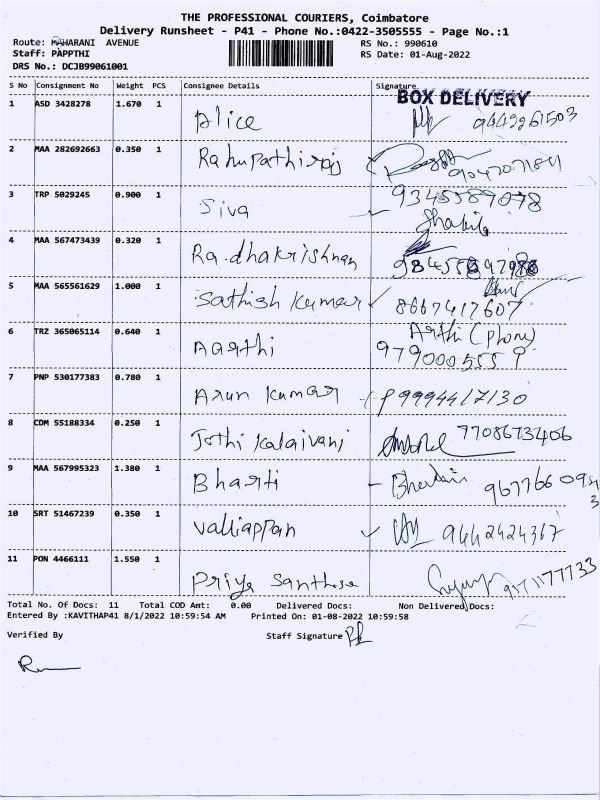 THE PROFESSIONAL COURIERS, Coimbatore
Delivery Runsheet - P41 - Phone No.:0422-3505555 - Page No.:1
Route: MAHARANI AVENUE RS No.: 990610
Staff: PAPPTHI RS Date: 01-Aug-2022
DRS No.: DCJB99061001
S No Consignment No Weight PCS Consignee Details Signature
BOX DELIVERY
1 ASD 3428278 1.670 1 Alice 9449261503
2 MAA 282692663 0.350 1 Rahupathiraj
3 TRP 5029245 0.900 1 Siva 9345589078
Shakila
4 MAA 567473439 0.320 1 Radhakrishnan
5 MAA 565561629 1.000 1 Sathish Kumar 8667417607
6 TRZ 365065114 0.640 1 Aarthi Arthi (Phone)
9790005559
7 PNP 530177383 0.780 1 Arun Kumar 99994417130
8 CDM 55188334 0.250 1 Jothi Kalaivani 7708673406
9 MAA 567995323 1.380 1 Bharti
10 SRT 51467239 0.350 1 Valliappan 9442424367
11 PON 4466111 1.550 1 Priya
Total No. Of Docs: 11 Total COD Amt: 0.00 Delivered Docs: Non Delivered Docs:
Entered By :KAVITHAP41 8/1/2022 10:59:54 AM Printed On: 01-08-2022 10:59:58
Verified By Staff Signature